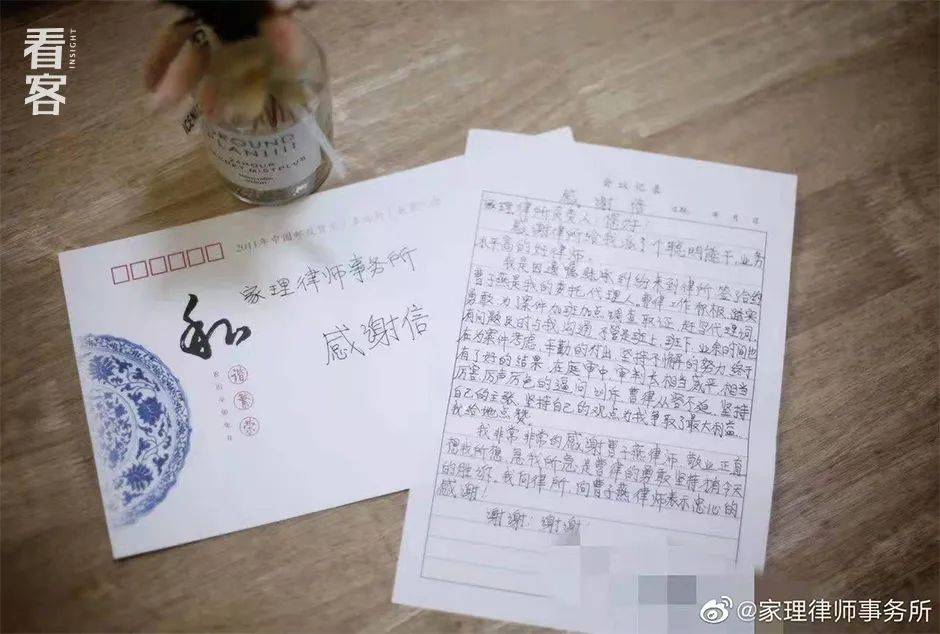 看客
INSIGHT
2011年中国邮政贺
家理律师事务所
感谢信
和
谐
繁
荣
会议记录
感谢信
日期: 年 月 日
家理律所负责人:您好!
感谢律所给我派了个聪明能干,业务
水平高的好律师。
我是因遗嘱继承纠纷来到律所,签约
曹子燕是我的委托代理人,曹律工作积极,踏实
勇敢,为案件加班加点调查取证,赶写代理词,
有问题及时与我沟通,不管是班上,班下,业余时间也
在为案件考虑,辛勤的付出,坚持不懈的努力,终于
有了好的结果,在庭审中,审判长相当威严,相当
厉害,厉声厉色的逼问,训斥,曹律从容不迫,坚持
自己的主张,坚持自己的观点,为我争取了最大利益,
我给她点赞。
我非常非常的感谢曹子燕律师,敬业正直,
想我所想,急我所急,是曹律的勇敢坚持,才有今天
的胜诉。我向律所,向曹子燕律师表示忠心的
感谢!
谢谢!谢谢!
@家理律师事务所